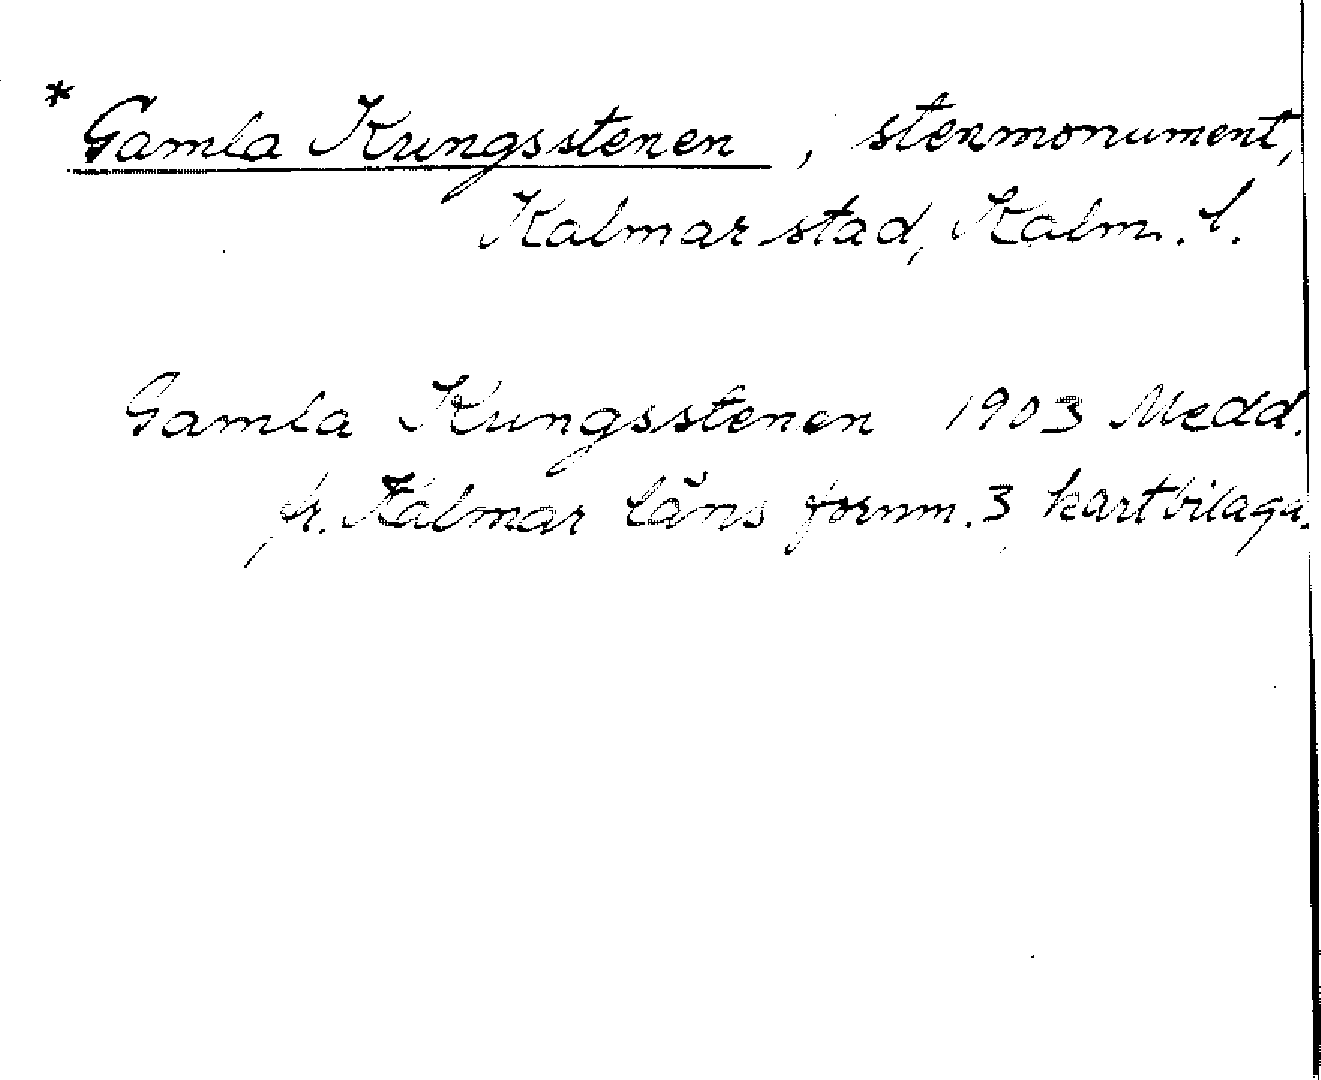 * Gamla Kungsstenen, stenmonument,
Kalmar stad, Kalm. l.
Gamla Kungsstenen 1903 Medd.
fr. Kalmar läns fornm. 3 kartbilaga.